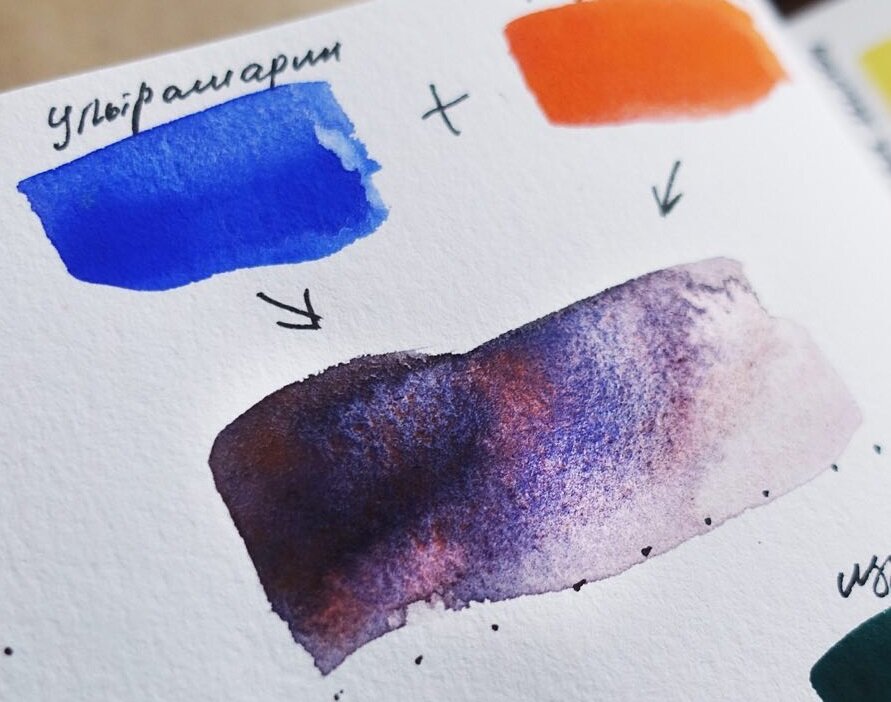 Ультрамарин
+
из